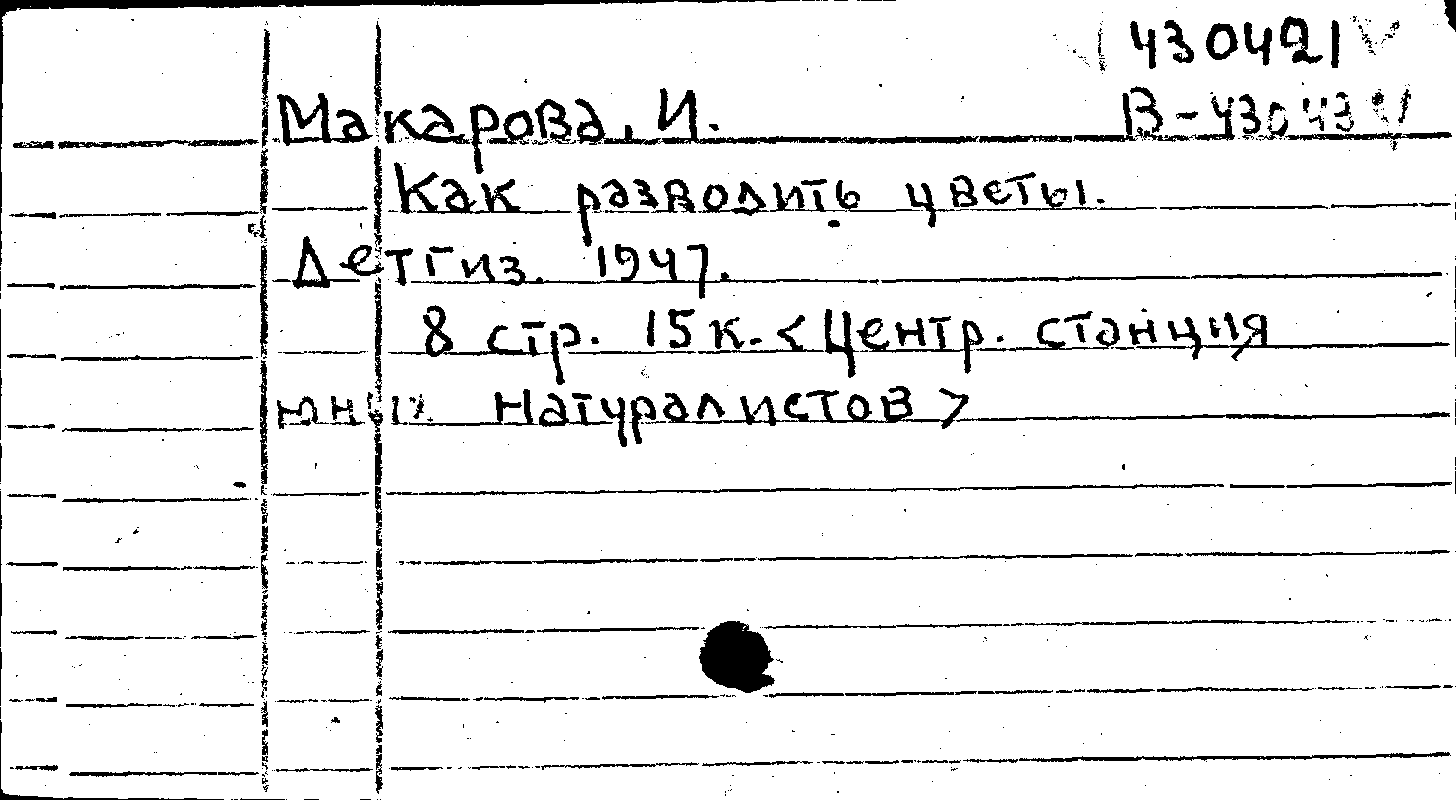 430421
В-43043
Макарова, И.
Как разводить цветы.
Детгиз. 1947.
8 стр. 15 к. <Центр. станция
юных натуралистов>